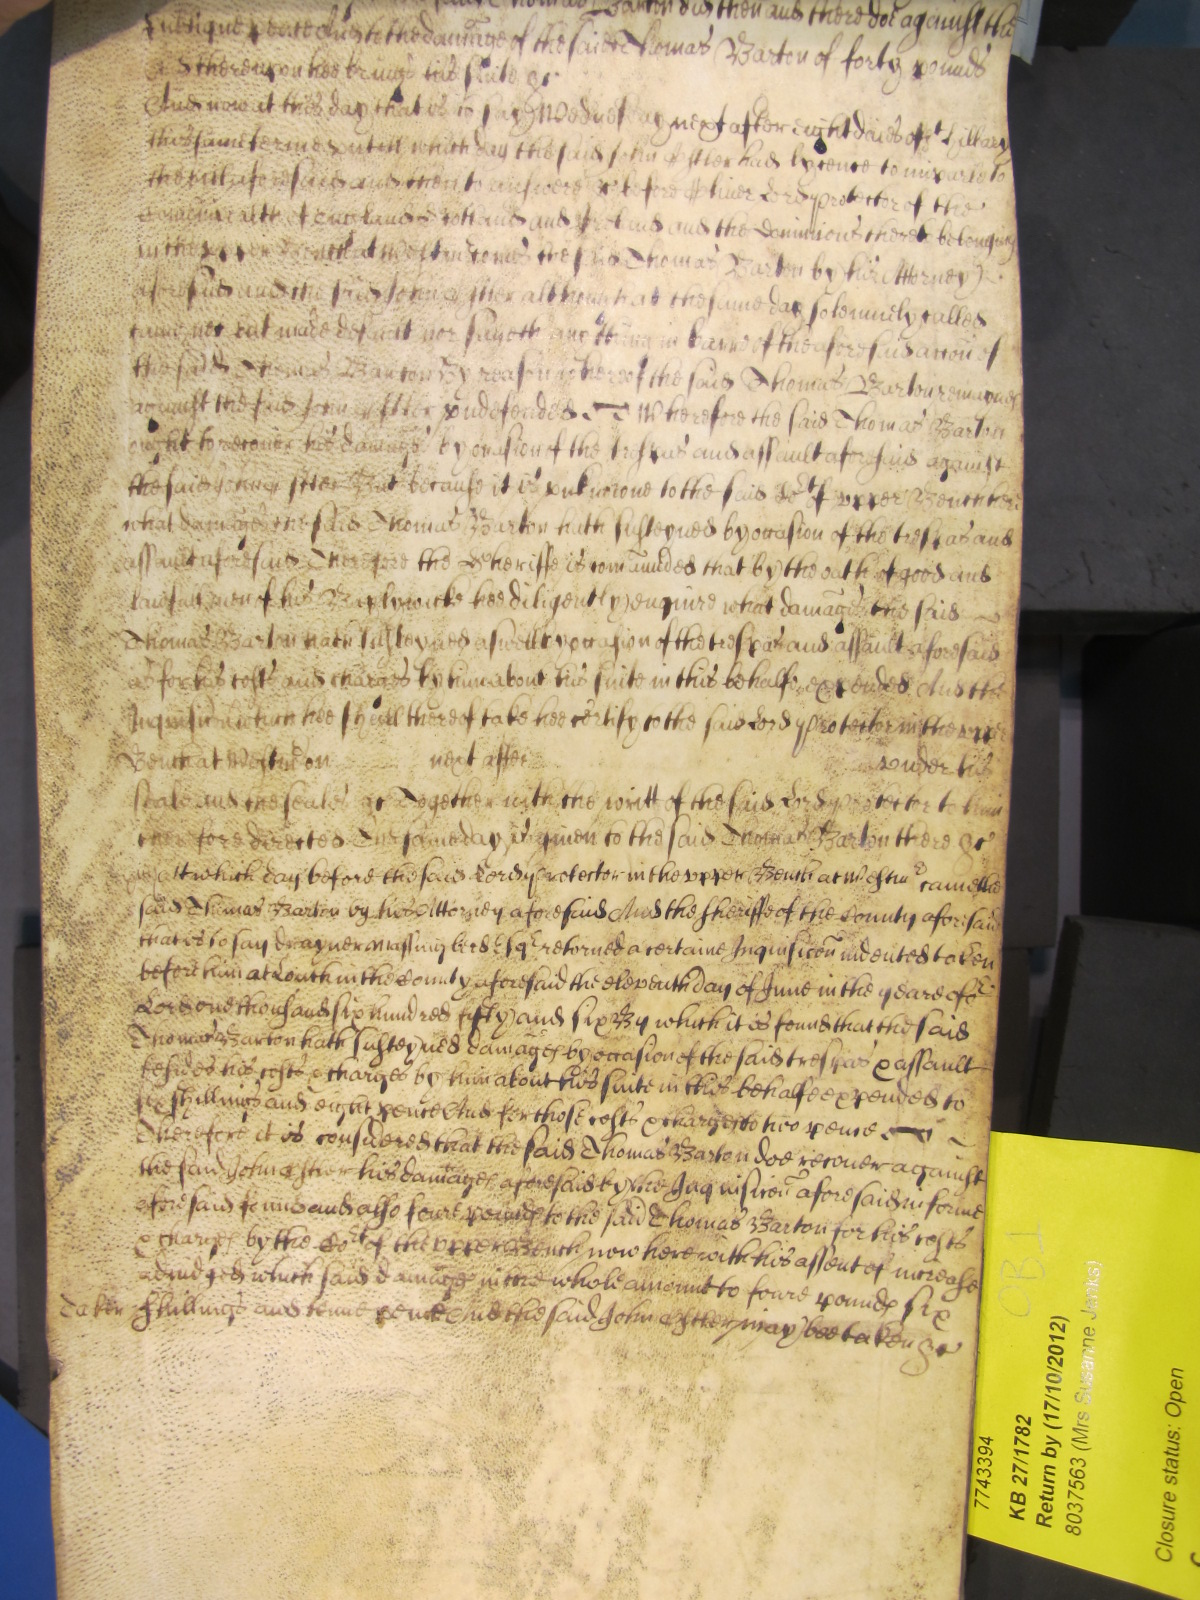 the said Thomas Barton did then and there doe against the
publique peace And to the damage of the said Thomas Barton of forty pounds
And thereupon hee brings his suite &c
And now at this day that is to say Wednesday next after eight daies of st Hillary
this same terme untill which day the said John had lycence to imparle to
the bill aforesaid and then to answere &c before Oliver Lord Protector of the
Comonwealth of England Scotland and Ireland and the Dominions thereto belonging
in the upper Bench at Westm comes the said Thomas Barton by his Attorney
aforesaid and the said John although at the same day solemnely called
came not but made default nor sayeth any thing in barre of the aforesaid accion of
the said Thomas Barton By reason whereof the said Thomas Barton remaynes
against the said John undefended Wherefore the said Thomas Barton
ought to recover his damages by occasion of the trespas and assault aforesaid against
the said John But because it is unknowne to the said Cort of upper Bench here
what damages the said Thomas Barton hath susteyned by occasion of the trespas and
assault aforesaid Therefore the Sheriffe is comaunded that by the oath of good and
lawfull men of his Baylywicke hee diligently enquire what damages the said
Thomas Barton hath susteyned aswell by occasion of the trespas and assault aforesaid
as for his costs and charges by him about his suite in this behalfe expended And the
Inquisicon which hee shall thereof take hee certify to the said Lord Protector in the upper
Bench at Westm on next after under his
seale and the seales &c Together with the writt of the said Lord Protector to him
therefore directed The same day is given to the said Thomas Barton there &c
Att which day before the said Lord Protector in the upper Bench at Westm came the
said Thomas Barton by his Attorney aforesaid And the Sheriffe of the County aforesaid
that is to say Drayner Massingberd Esqr returned a certaine Inquisicon indented taken
before him at Louth in the County aforesaid the eleventh day of June in the yeare of or
Lord one thousand six hundred fifty and six By which it is found that the said
Thomas Barton hath susteyned damages by occasion of the said trespas & assault
besides his costs & charges by him about his suite in this behalfe expended to
six shillings and eight pence And for those costs & charges to two pence
Therefore it is considered that the said Thomas Barton doe recover against
the said John his damages aforesaid by the Inquisicon aforesaid in forme
aforesaid found and also foure pounds to the said Thomas Barton for his costs
& charges by the Cort of the upper Bench now here with his assent of increase
adiudged which said damages in the whole amount to foure pounds six
Taken shillings and tenne pence And the said John may bee taken &c
OB1
7743394
KB 27/1782
Return by (17/10/2012)
8037563 (Mrs Susanne Jenks)
Closure status: Open